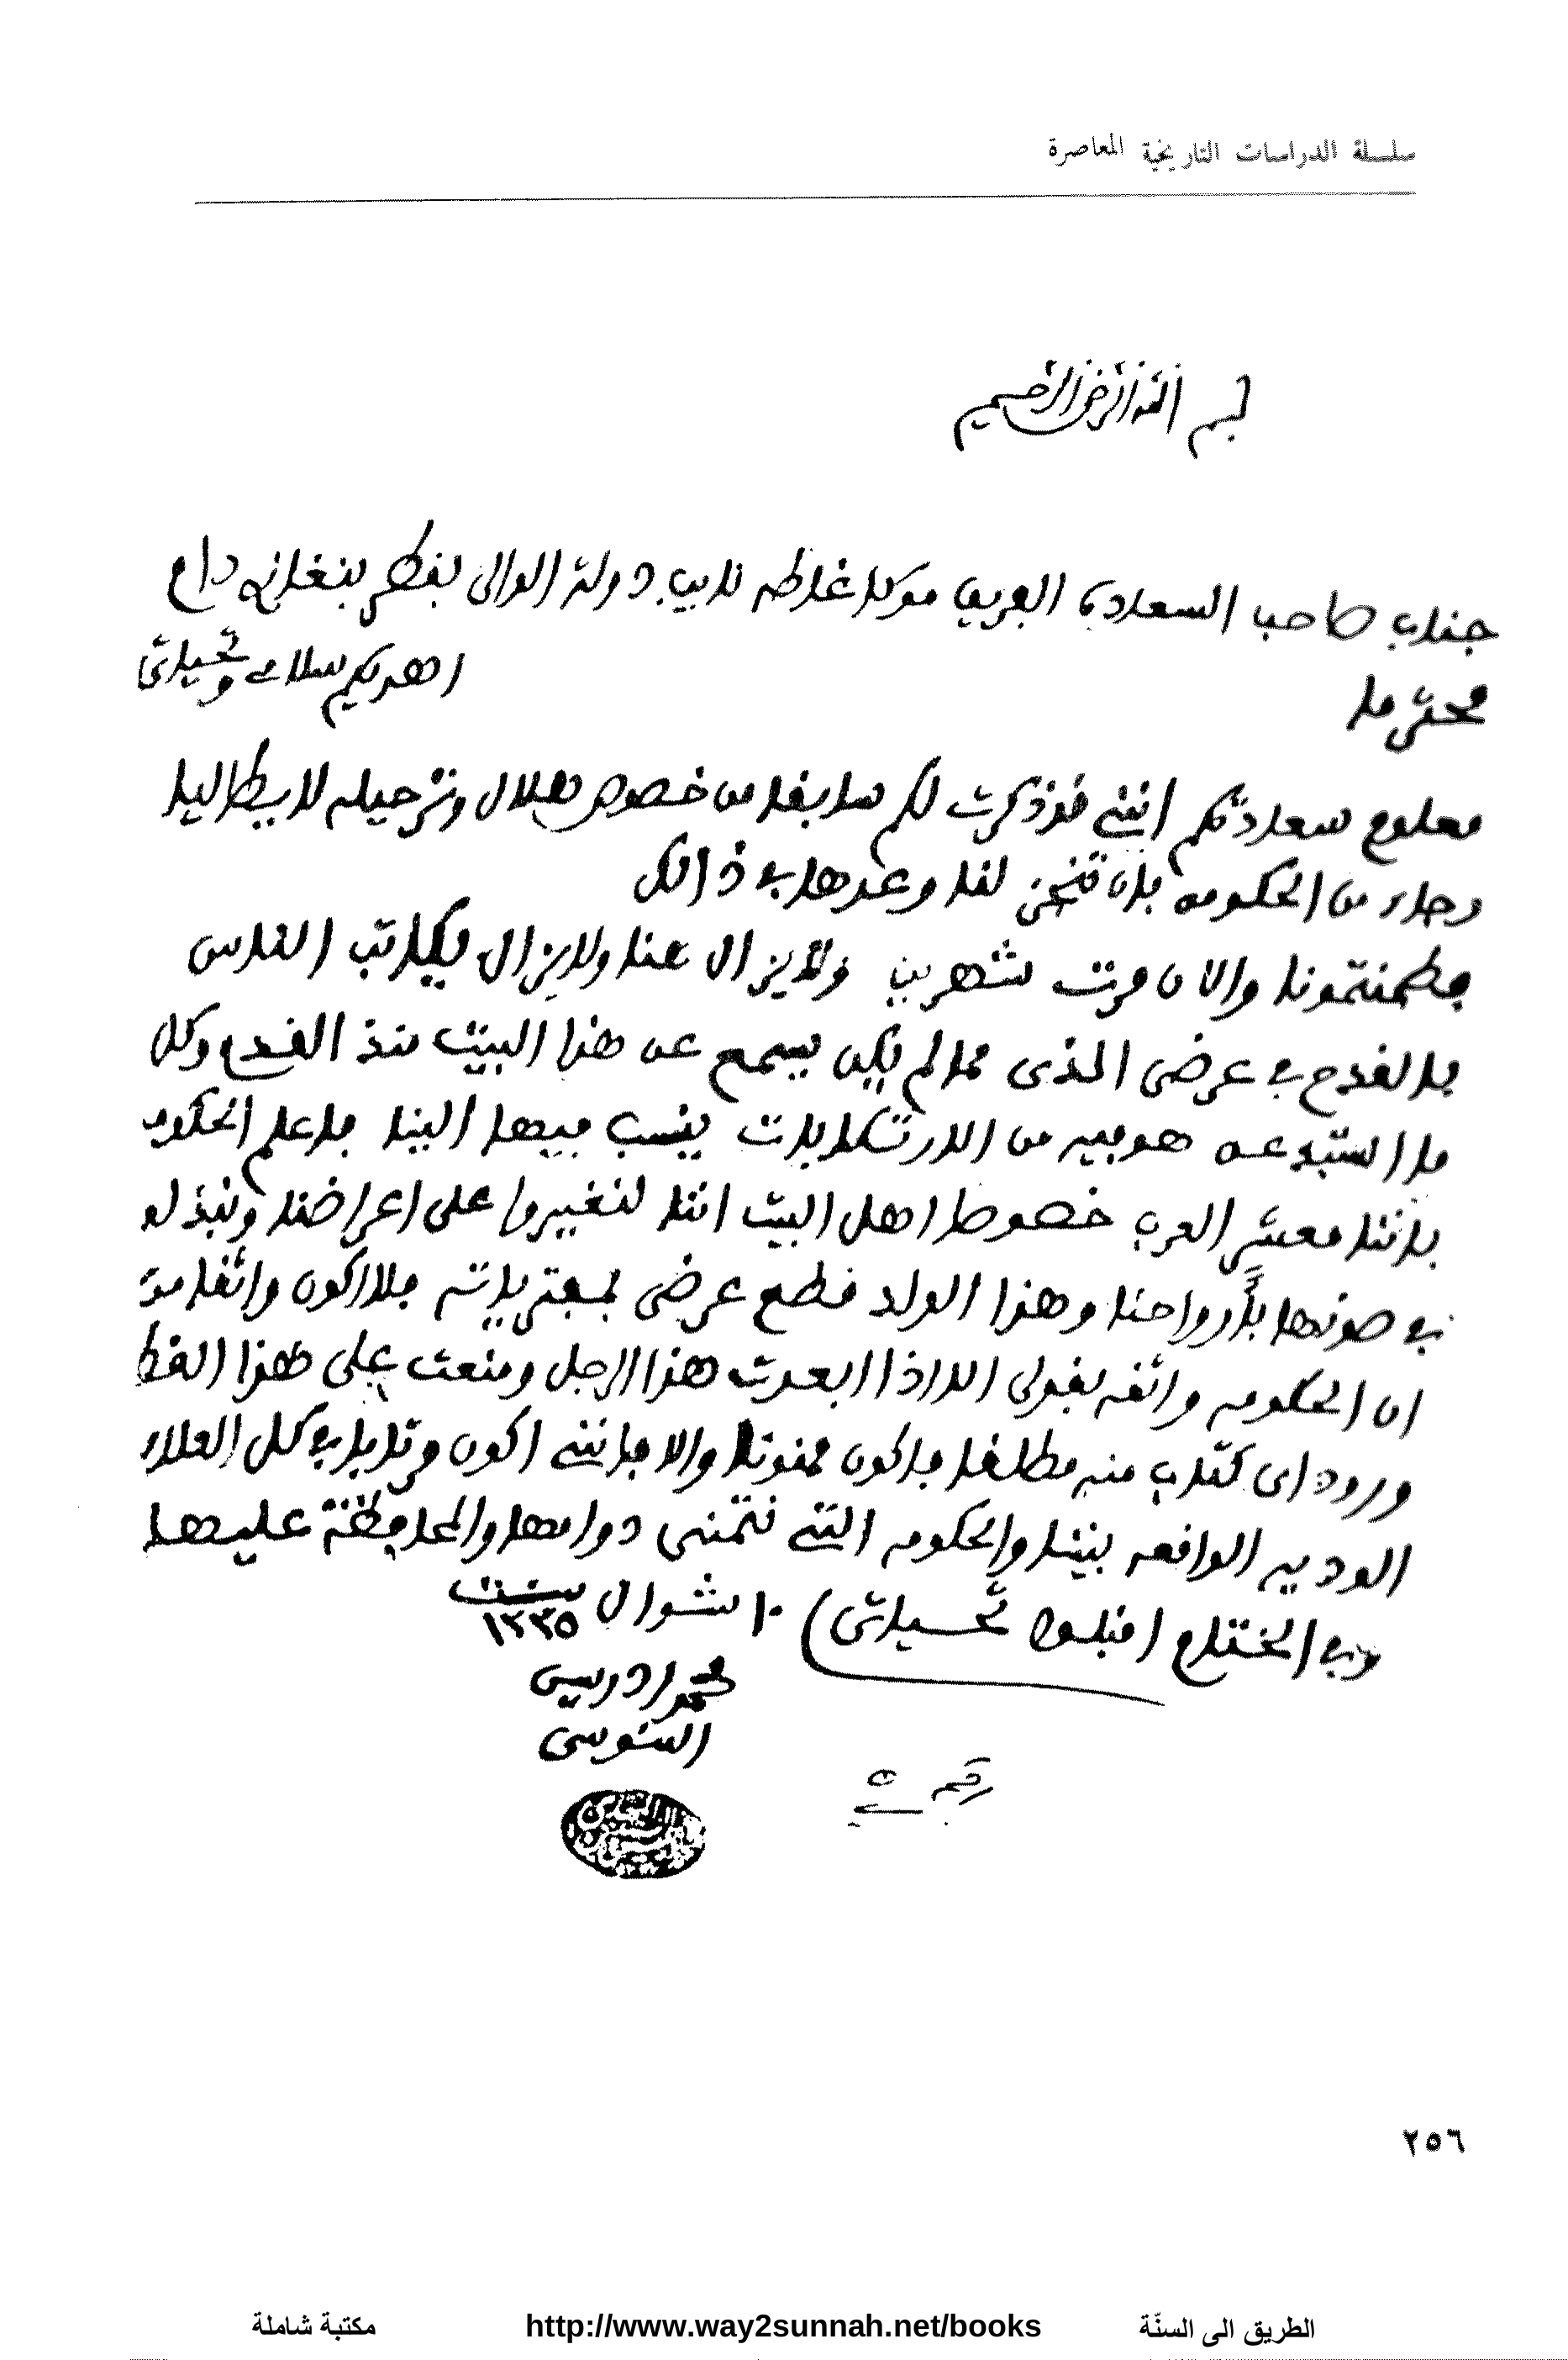 سلسلة الدراسات التاريخية المعاصرة
بسم الله الرحمن الرحيم
جناب صاحب السعادة نايب دولة الوالى بقطر بنغازى دام
محترما اهديكم سلامي وتحياتى
معلوم سعادتكم اننى قد ذكرت لكم سابقا من خصوص هلال وترحيله لايطاليا
رجاء من الحكومه بان تنجز لنا وعدها في ذالك
فطمنتمونا والان مرت شهرين ولايزال عنا ولايزال يكاتب الناس
بالقدح في عرضى الذى مما لم يكن يسمع عن هذا البيت منذ القدم وكل
ما هو فيه من الارتكابات ينسب فيها الينا فاعلم الحكومه
باننا معشر العرب خصوصا اهل البيت اننا لنغير على اعراضنا ونبذل
في صونها بأرواحنا وهذا الولد قطع عرضى فلا اكون واثقا من
ان الحكومه واثقه بقولى الا اذا ابعدت هذا الرجل ومنعت على هذا القطر
ورود اى كتاب منه مطلقا فاكون ممنونا والا فاننى اكون مرتابا في كل
الوديه الواقعه بيننا والحكومه التى نتمنى دوامها والمحافظة عليها
وفي الختام اقبلوا تحياتى ١٠ شوال سنة ١٣٣٥
محمد ادريس
السنوسى
رقم
٢٥٦
الطريق الى السنّة http://www.way2sunnah.net/books مكتبة شاملة